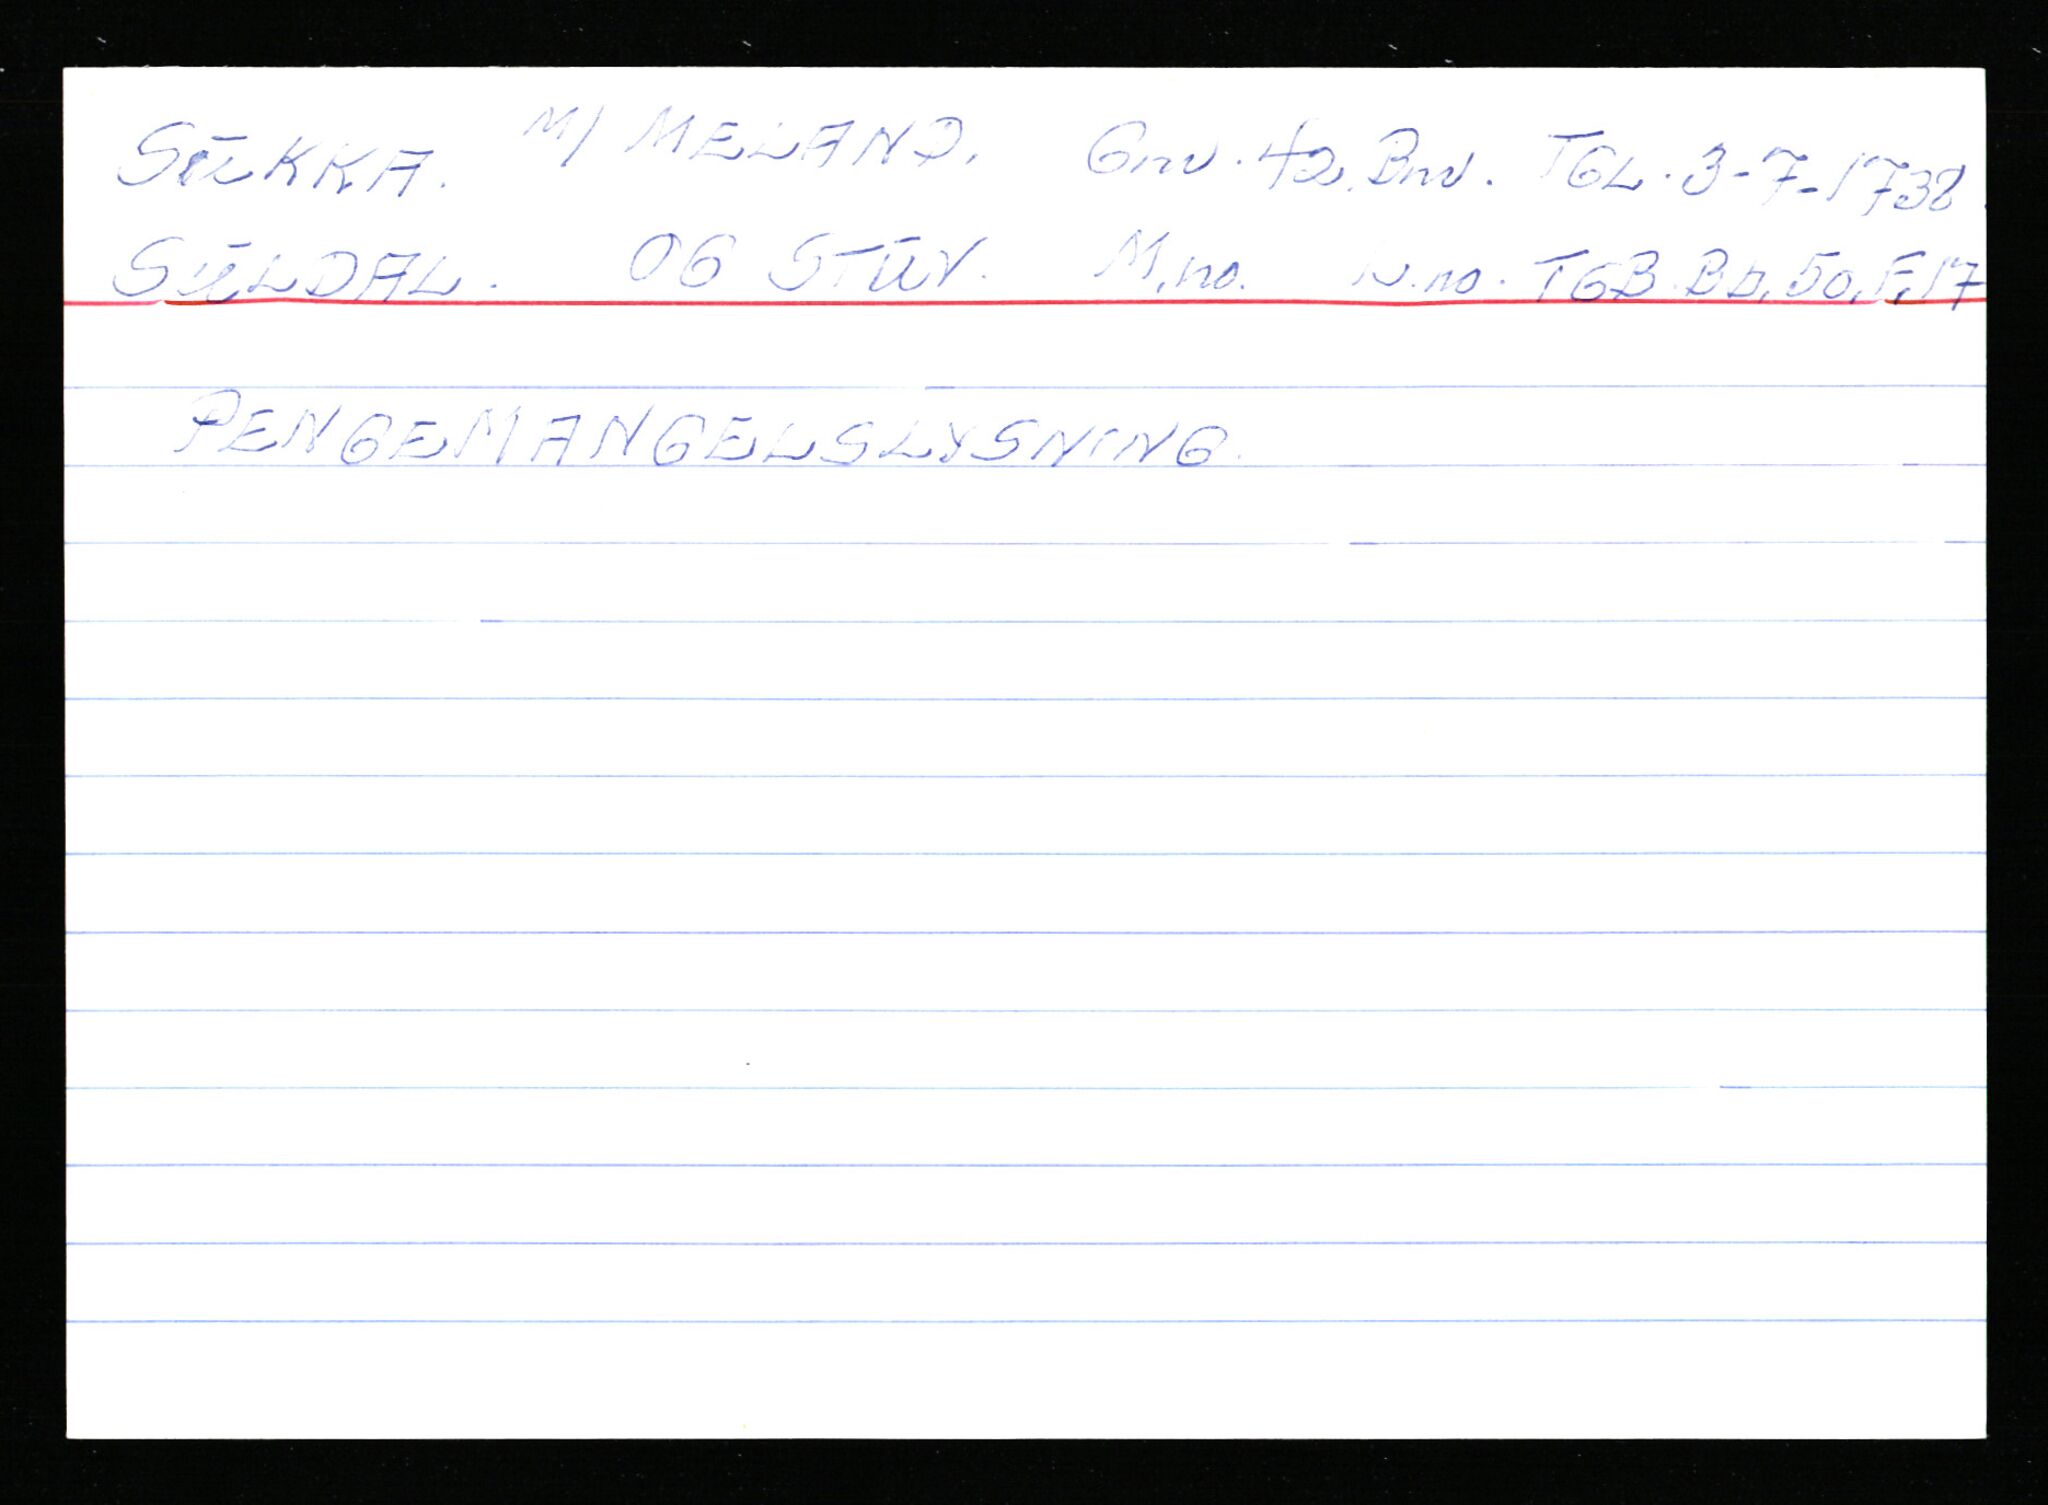 SŪKKA. M/ MELAND. Gnr. 42. Bnr. TGL. 3-7-1738.
SŪLDAL. OG STŪV. M.no. N.no. TGB. Bb. 50. F. 17
PENGEMANGELSLYSNING.